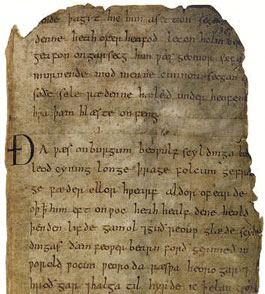 ende þa gyt hie him asetton segen
denne heah ofer heafod leton holm
geafon on garsecg him wæs geomor sefa
murnende mod men ne cunnon secgan
soðe sele rædenne hæleð under heofenum
hwa þæm hlæste onfeng
ÐA wæs on burgum beowulf scyldinga
leod cyning longe þrage folcum gefræ
ge fæder ellor hwearf aldor of earde
oþ þ him eft onwoc heah healfdene heold
þenden lifde gamol ⁊ guð reouw glæde scyl
dingas ðæm feower bearn forð gerimed in
worold wocun weoroda ræswa heoro gar
hroð gar ⁊ halga til hyrde ic þ elan